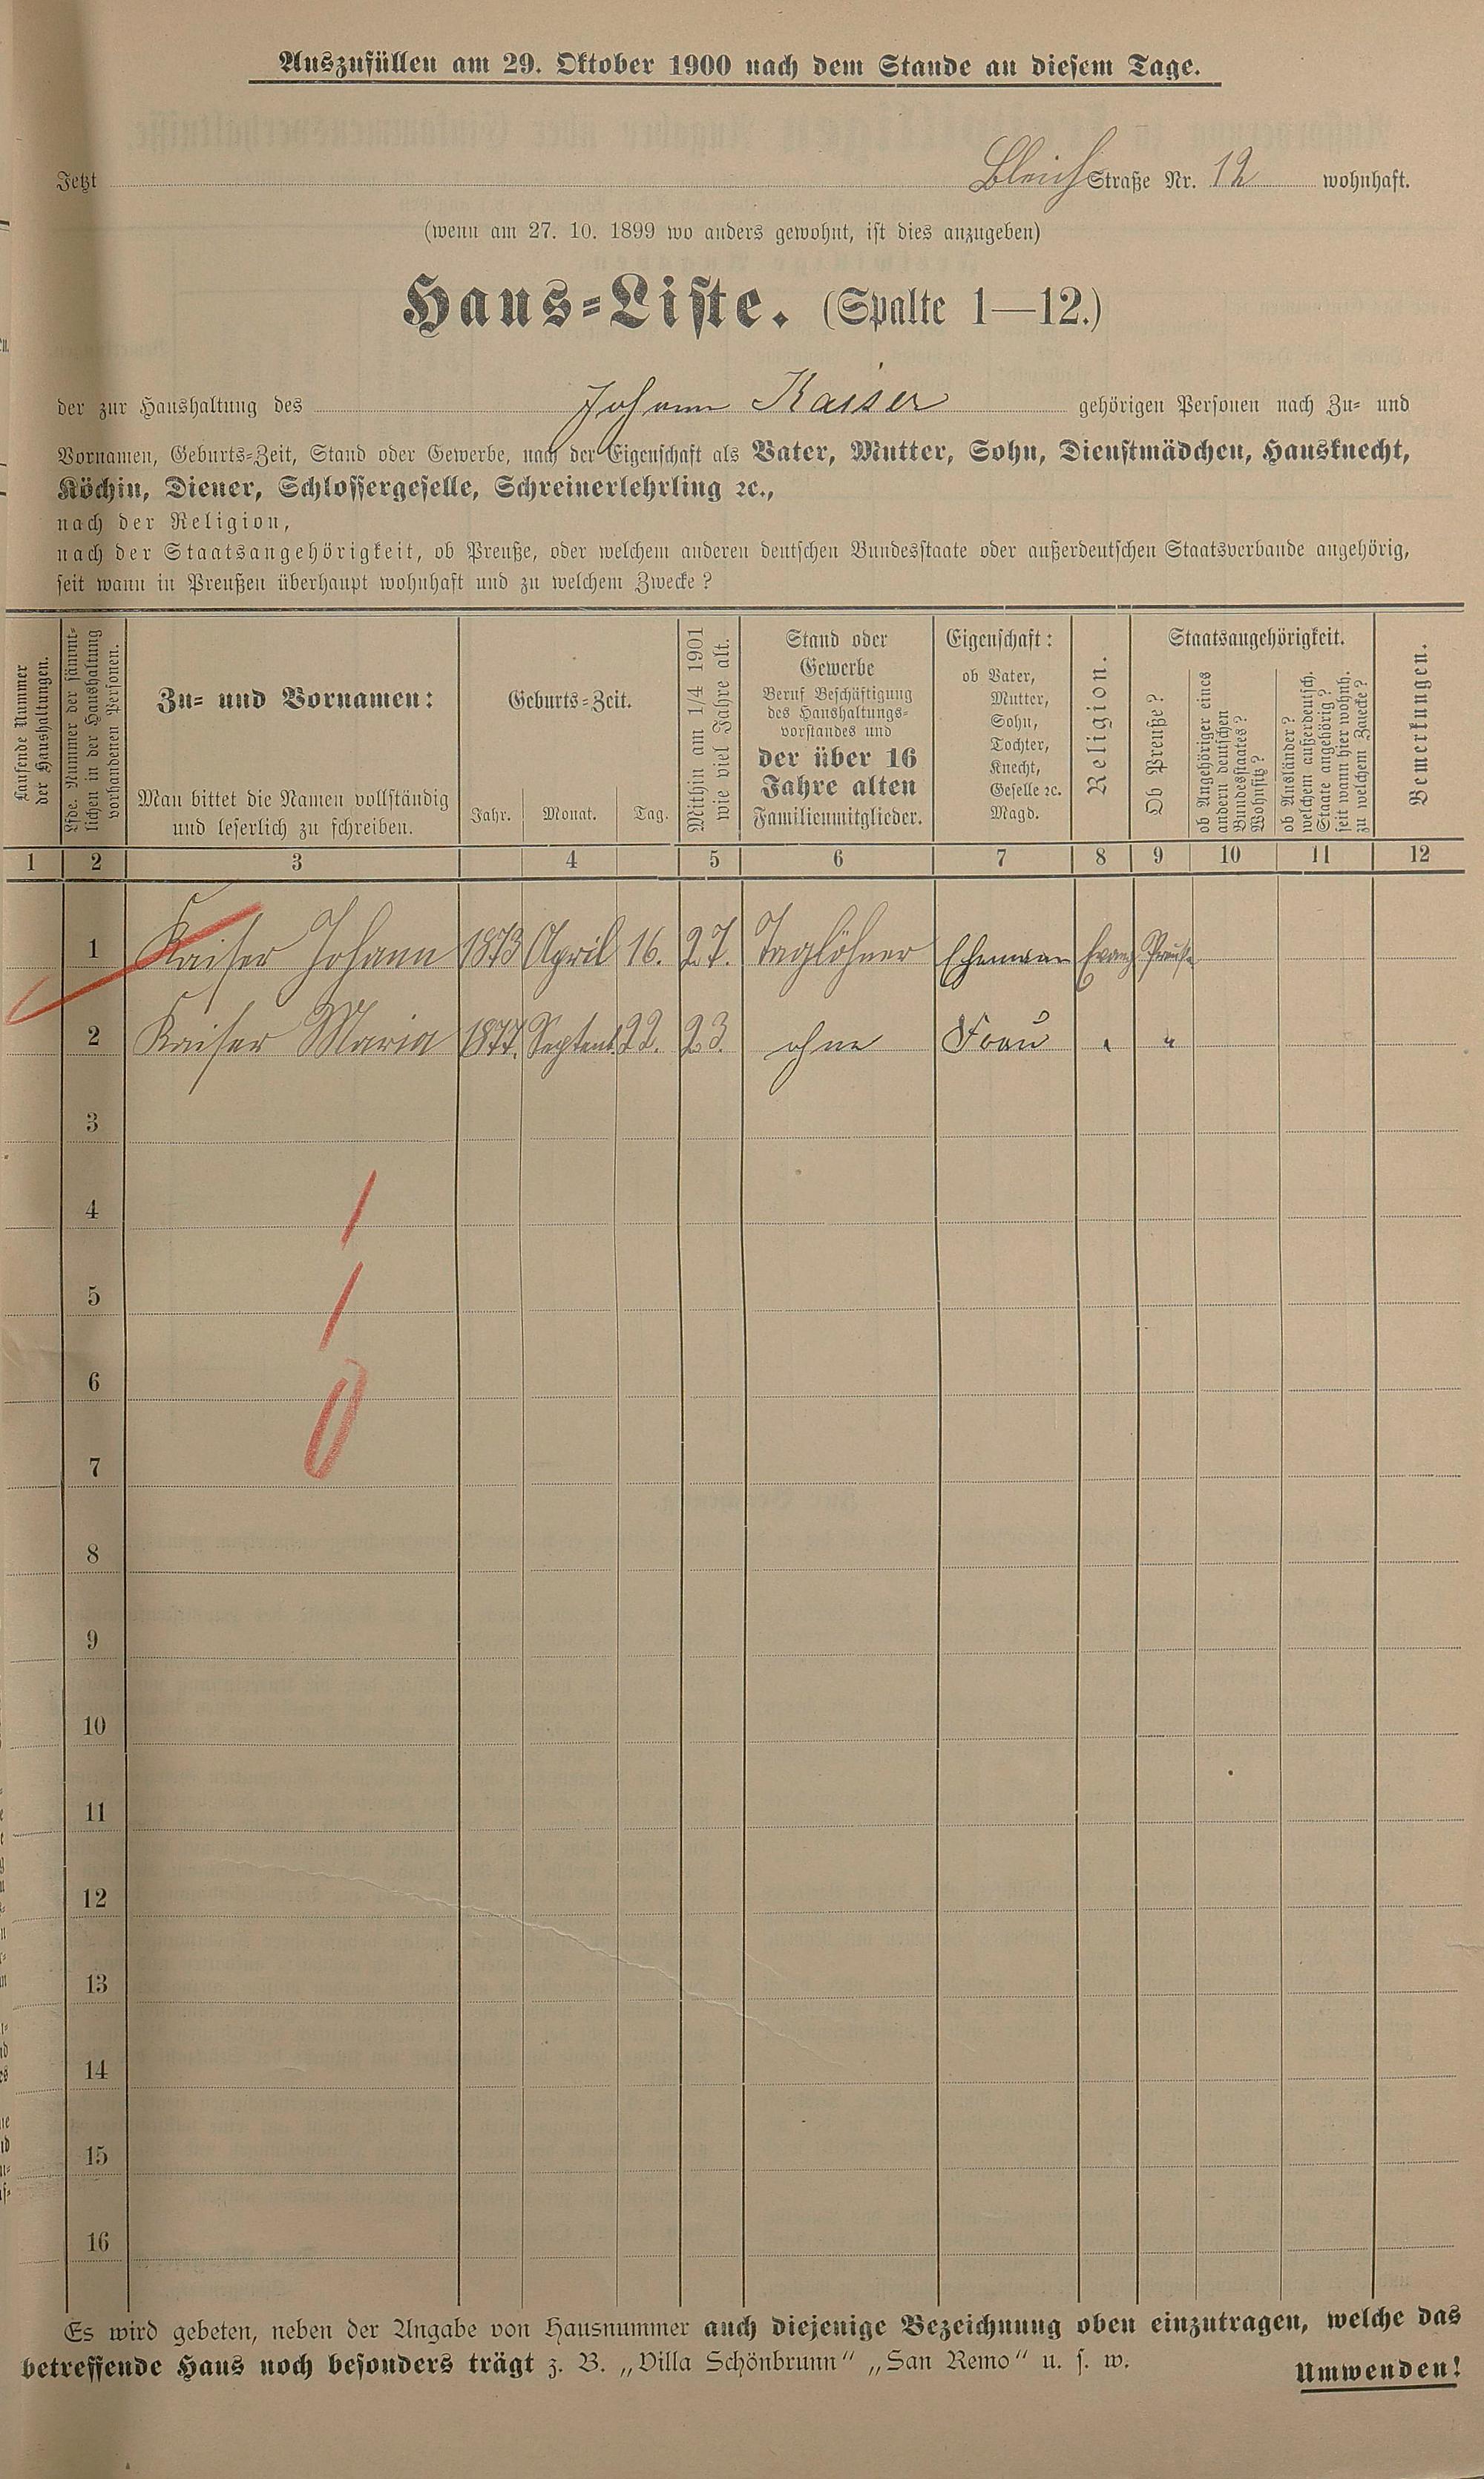 Auszufüllen am 29. Oktober 1900 nach dem Stande an diesem Tage.
Jetzt Bleich Straße Nr. 12 wohnhaft.
(wenn am 27. 10. 1899 wo anders gewohnt, ist dies anzugeben)
Haus-Liste. (Spalte 1—12.)
der zur Haushaltung des Johann Kaiser gehörigen Personen nach Zu- und
Vornamen, Geburts-Zeit, Stand oder Gewerbe, nach der Eigenschaft als Vater, Mutter, Sohn, Dienstmädchen, Hausknecht,
Köchin, Diener, Schlossergeselle, Schreinerlehrling ꝛc.,
nach der Religion,
nach der Staatsangehörigkeit, ob Preuße, oder welchem anderen deutschen Bundesstaate oder außerdeutschen Staatsverbande angehörig,
seit wann in Preußen überhaupt wohnhaft und zu welchem Zwecke?
Laufende Nummer
der Haushaltungen.
Lfde. Nummer der sämmt-
lichen in der Haushaltung
vorhandenen Personen.
Zu- und Vornamen:
Man bittet die Namen vollständig
und leserlich zu schreiben.
Geburts-Zeit.
Jahr. Monat. Tag.
Mithin am 1/4 1901
wie viel Jahre alt.
Stand oder
Gewerbe
Beruf Beschäftigung
des Haushaltungs-
vorstandes und
der über 16
Jahre alten
Familienmitglieder.
Eigenschaft:
ob Vater,
Mutter,
Sohn,
Tochter,
Knecht,
Geselle ꝛc.
Magd.
Religion.
Staatsangehörigkeit.
Ob Preuße?
ob Angehöriger eines
andern deutschen
Bundesstaates?
Wohnsitz?
ob Ausländer?
welchem außerdeutsch.
Staate angehörig?
seit wann hier wohnh.
zu welchem Zwecke?
Bemerkungen.
1 2 3 4 5 6 7 8 9 10 11 12
1 Kaiser Johann 1873 April 16. 27. Taglöhner Ehemann Evang Preuße
2 Kaiser Maria 1877. Septemb. 22. 23. ohne Frau " "
3
4
5
6
7
8
9
10
11
12
13
14
15
16
Es wird gebeten, neben der Angabe von Hausnummer auch diejenige Bezeichnung oben einzutragen, welche das
betreffende Haus noch besonders trägt z. B. „Villa Schönbrunn“ „San Remo“ u. s. w.
Umwenden!